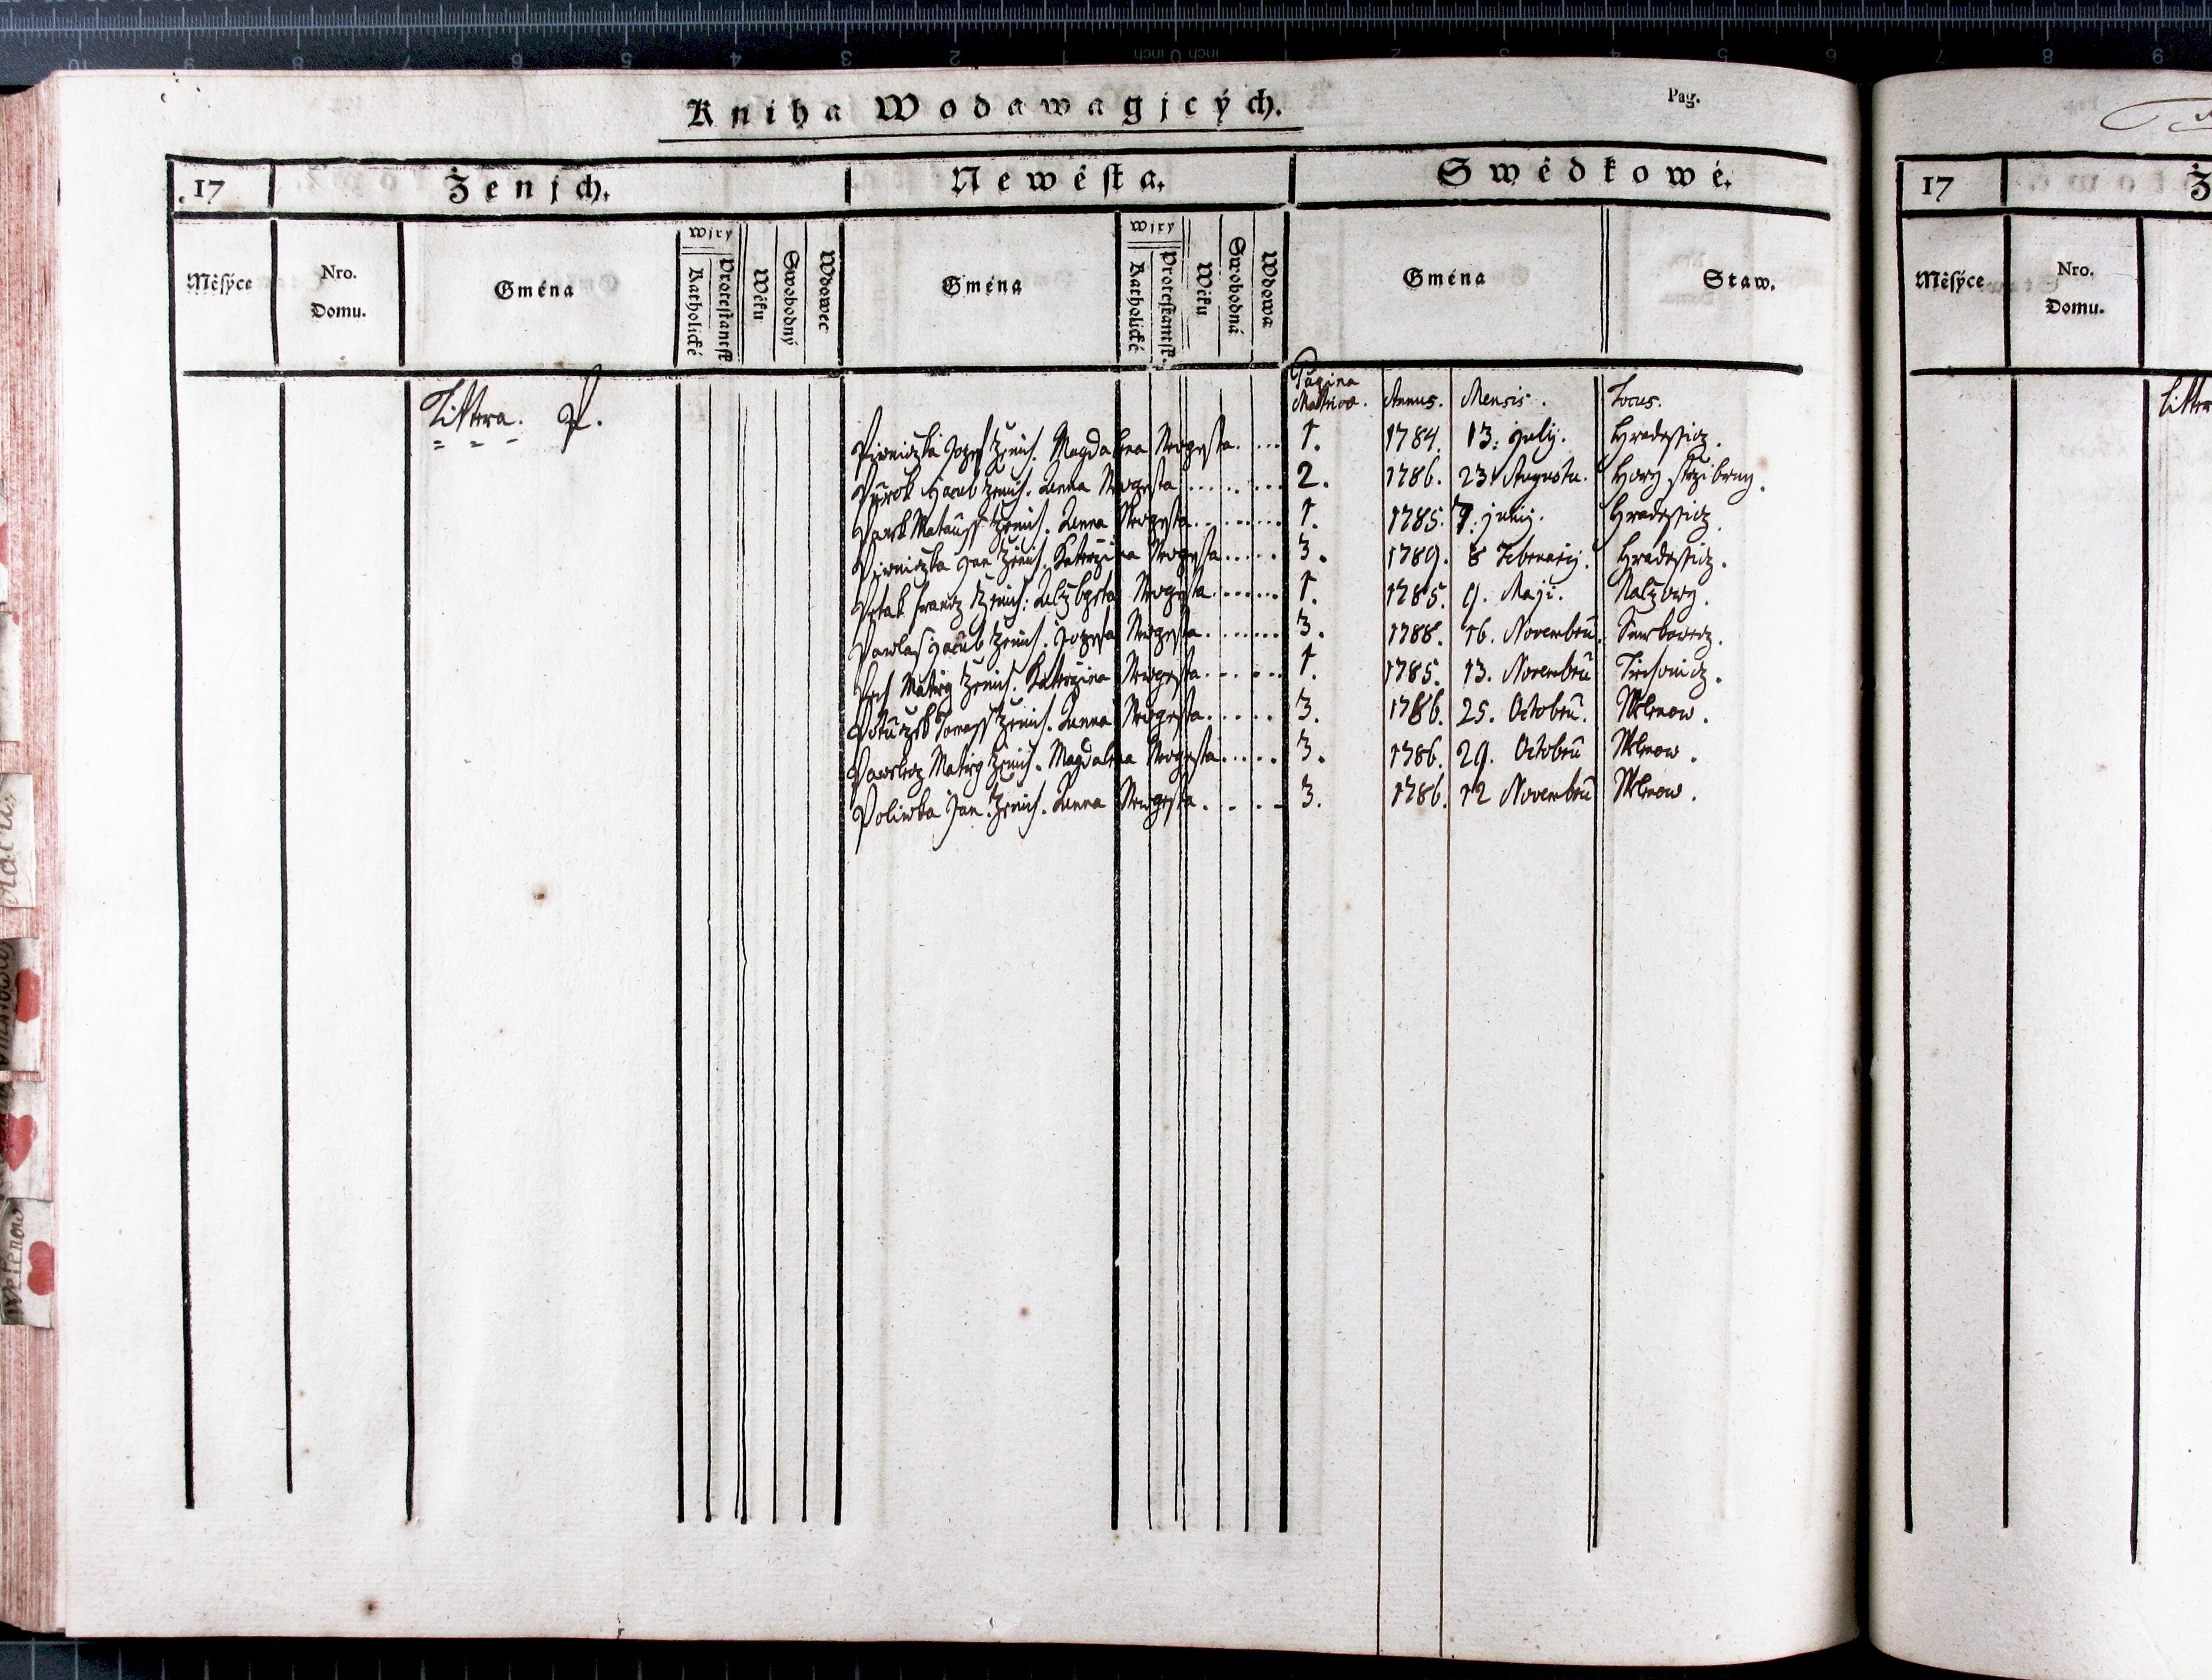 Kniha Wodawagjcých.
Pag.
17 Ženjch. Newěsta. Swědkowé.
Měsýce Nro. Domu. Gména Wjry Katholické Protestantsk Wěku Swobodný Wdowec Gména Wjry Katholické Protestantsk. Wěku Swobodná Wdowa Gména Staw.
Littera. P. Pagina Matricae. Annus. Mensis. Locus.
Jozef Ženich. Magdalena Newgesta.... 1. 1784. 13. July. Hradessicz.
Jacub Ženich. Anna Newgesta........ 2. 1786. 23 Augusta. Hory stržibrny.
Matauss Ženich. Anna Newgesta........ 1. 1785. 7. Hradessicz.
Jan Ženich. Katerzina Newgesta..... 3. 1789. 8 Februarij. Hradessicz.
Ptak Frantz Ženich. Alzbgeta Newgesta...... 1. 1785. 9. Maji. Nalzowy.
Pawlas Jacub Ženich. Jozefa Newgesta....... 3. 1788. 16. Novembru.
Matieg Ženich. Katerzina Newgesta...... 1. 1785. 13. Novembru
Tomass Ženich. Anna Newgesta..... 3. 1786. 25. Octobru. Wlenow.
Matieg Ženich. Magdalena Newgesta..... 3. 1786. 29. Octobru Wlenow.
Poliwka Jan. Ženich. Anna Newgesta..... 3. 1786. 12 Novembru Wlenow.
17
Měsýce Nro. Domu.
Welenow